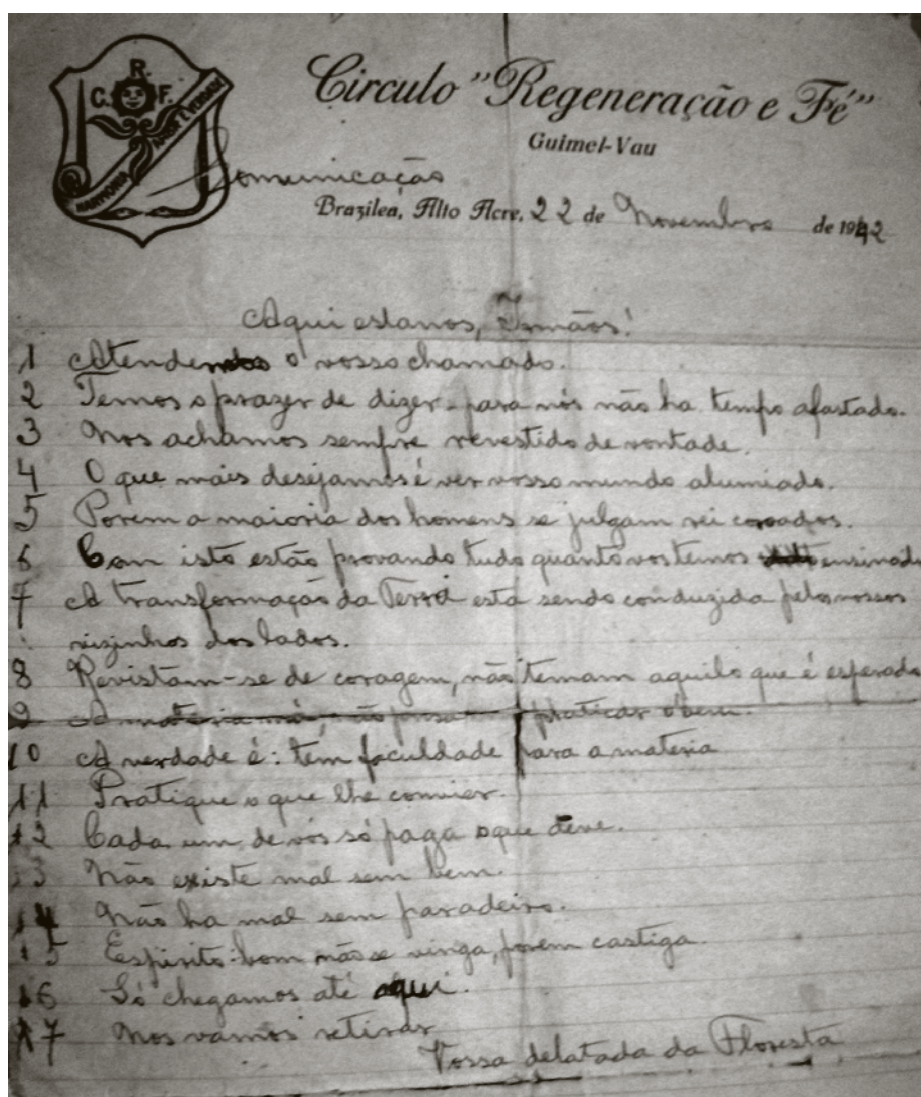 R.
C. F.
HARMONIA AMOR E VERDADE
Circulo "Regeneração e Fé"
Guimel-Vau
Comunicação
Brazilea, Alto Acre, 22 de Novembro de 1942
Aqui estanos, Irmãos!
1 Atendendo o vosso chamado.
2 Temos o prazer de dizer, para nós não ha tempo afastado.
3 Nos achamos sempre revestido de vontade.
4 O que mais desejamos é ver vosso mundo alumiado.
5 Porem a maioria dos homens se julgam rei coroados.
6 Com isto estão provando tudo quanto vos temos ensinad
7 A transformação da Terra está sendo conduzida pelos vossos
vizinhos dos lados.
8 Revistam-se de coragem, não temam aquilo que é esperado
9 A materia má, não praticar o bem.
10 A verdade é: tem faculdade para a materia
11 Pratique o que lhe convier.
12 Cada um de vós só paga o que deve.
13 Não existe mal sem bem.
14 Não ha mal sem paradeiro.
15 Espirito bom não se vinga, porem castiga.
16 Só chegamos até aqui.
17 Nos vamos retirar
Vossa delatada da Floresta